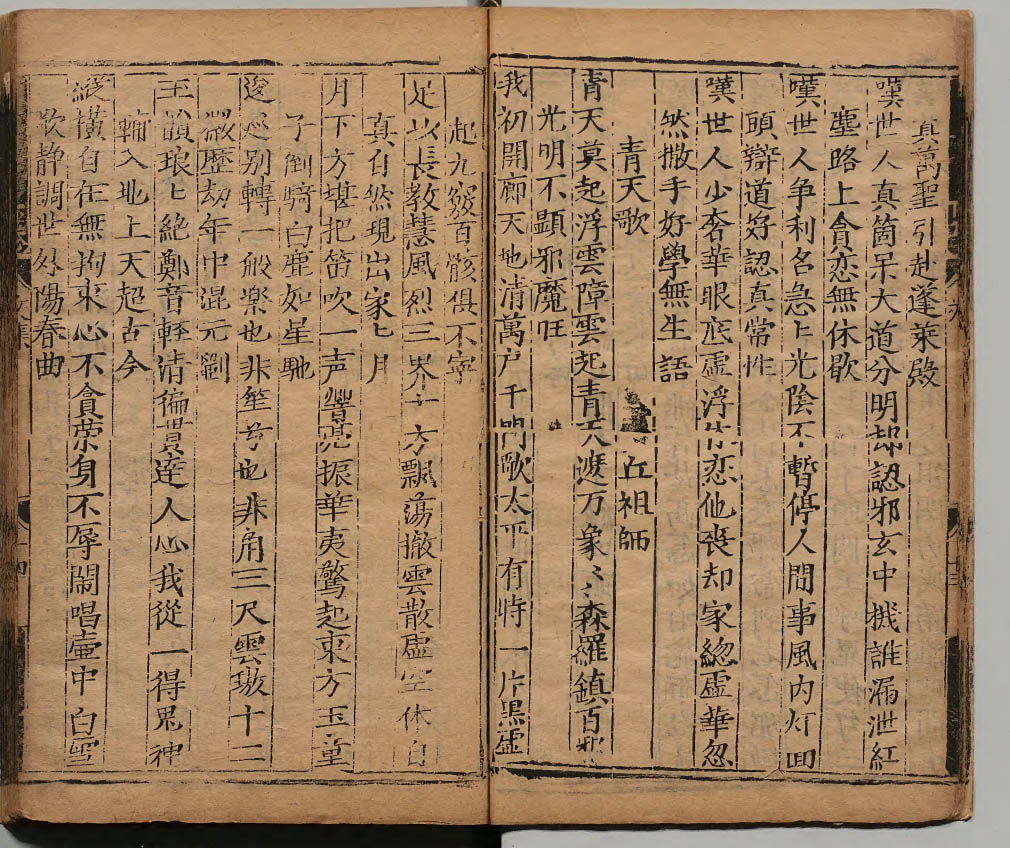 真萬聖引赴蓬萊殿
嘆世人真箇呆大道分明却認邪玄中機誰漏泄紅
塵路上貪恋無休歇
嘆世人争利名急上光陰不暫停人間事風內灯回
頭辯道好認真常性
嘆世人少奢華眼底虛浮休恋他喪却家緫虛華忽
然撒手好學無生語
青天歌 丘祖師
青天莫起浮雲障雲起青天遮万象万象森羅鎮百邪
光明不顯邪魔旺
我初開廓天地清萬户千門歌太平有時一片黑雲
起九竅百骸俱不寧
足以長教慧風烈三界十方飄蕩撤雲散虛空体自
真自然現出家七月
月下方堪把笛吹一声響亮振華夷驚起東方玉童
子倒騎白鹿如星馳
逡廵别轉一般樂也非笙兮也非角三尺雲璈十二
徽歷劫年中混元劉
玉韻琅七絶鄭音輕清徧貫達人心我從一得鬼神
輔入地上天超古今
縱橫自在無拘束心不貪荣身不辱閙唱壷中白雪
歌静調世外陽春曲